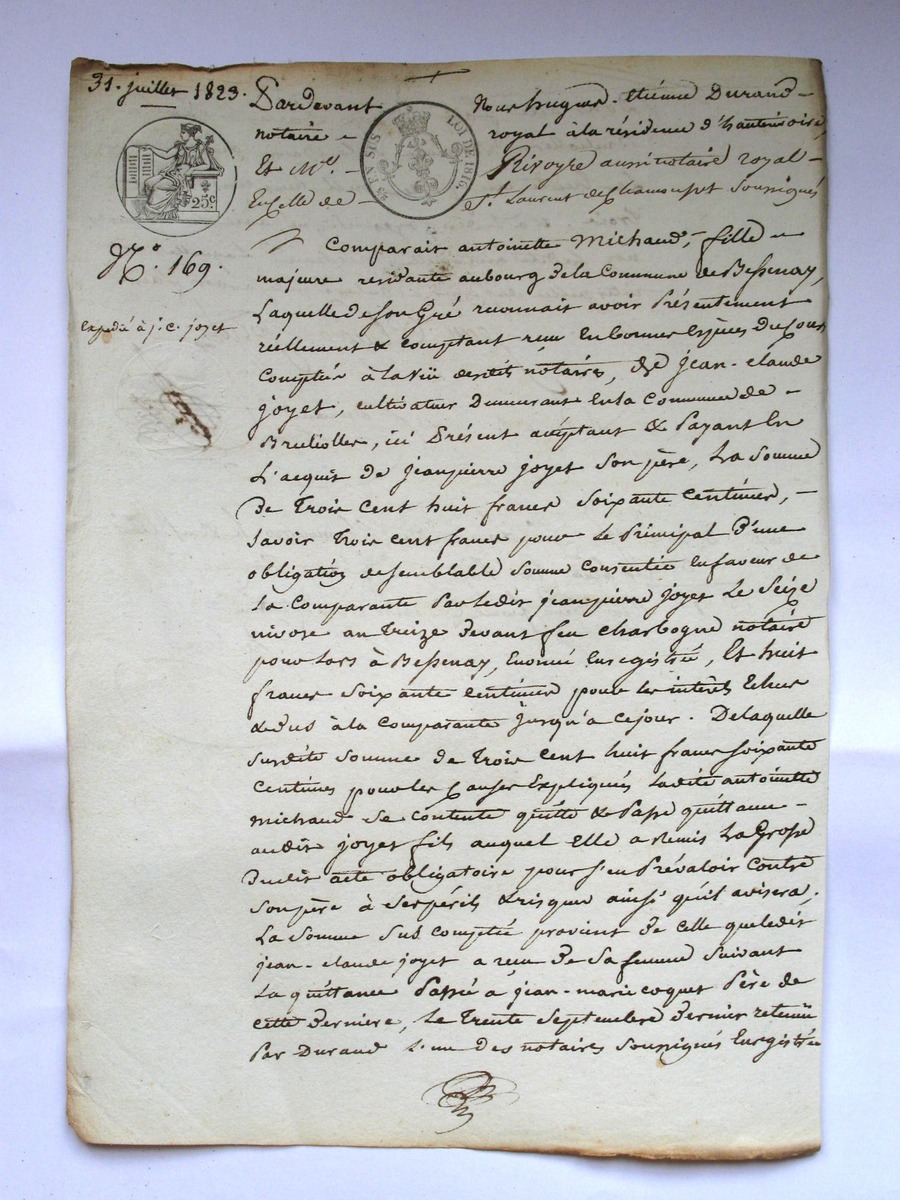 31. juillet 1823.
Pardevant Nous hugues-étienne Durand
notaire royal à la résidence d'hauterivoire,
Et Me Rivoyre aussi notaire royal
En celle de St. Laurent de Chamousset soussignés
25 EN SUS
LOI DE 1816.
25c.
No. 169.
Expédié à j. c. joyet
Comparait antoinette Michaud, fille
majeure residante au bourg de la Commune de Bessenay,
Laquelle de son Gré reconnait avoir Présentement
réellement & comptant reçu En bonnes Espèces du Cours
Comptées à la vüe desdits notaires, de jean-claude
joyet, cultivateur Demeurant En la Commune de
Brullioles, ici Présent acceptant & Payant En
L'acquit de jean pierre joyet son père, La somme
De Trois Cent huit francs soixante Centimes,
savoir Trois cent francs pour Le Principal D'une
obligation de semblable somme consentie En faveur de
La Comparante Par Ledit jean pierre joyet Le seize
nivose an Treize Devant feu Charbogne notaire
pour Lors à Bessenay, Enoncée Enregistrée, Et huit
francs soixante Centimes pour les intérêts Echus
& dus à la Comparante jusqu'à ce jour. De laquelle
susdite somme de Trois Cent huit francs soixante
Centimes pour les Causes Expliquées Ladite antoinette
Michaud se contente quitte & Passe quittance
audit joyet fils auquel Elle a Remis La Grosse
Dudit acte obligatoire pour s'en Prévaloir contre
son père à ses périls & risques ainsi qu'il avisera,
La somme sus comptée provient de celle que ledit
jean-claude joyet a reçu De sa femme suivant
La quittance Passée à jean-marie coquet Père de
cette Dernière, Le Trente Septembre Dernier retenüe
Par Durand L'un des notaires soussignés Enregistrée